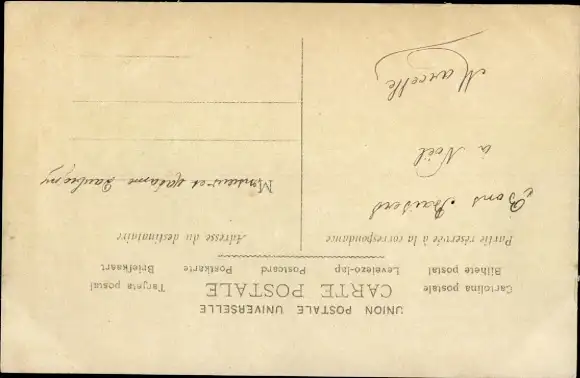 UNION POSTALE UNIVERSELLE
CARTE POSTALE
Cartolina postale
Tarjeta postal
Bilhete postal
Levelezo-lap
Postcard
Postkarte
Briefkaart
Partie réservée à la correspondance
Adresse du destinataire
Bons Baisers
à Noël
Marcelle
Monsieur et Madame